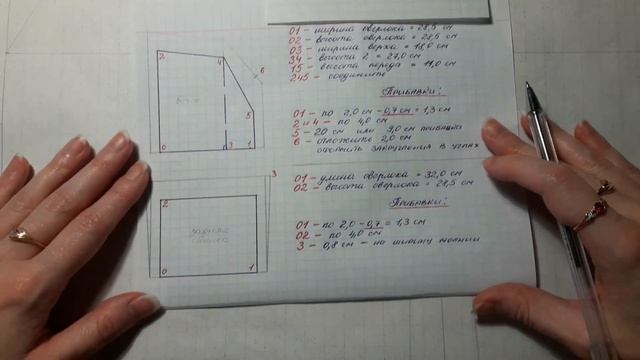 01 - ширина оверлока = 28,5 см
02 - высота оверлока = 28,5 см
03 - ширина верха = 18,0 см
34 - высота 2 = 27,0 см
15 - высота переда = 11,0 см
245 - соединить
Прибавки:
01 - по 2,0 см - 0,7 см = 1,3 см
2 и 4 - по 4,0 см
5 - 20 см или 3,0 см прибавка
6 - отложить 2,0 см
оформить закругления в углах
2
4
6
5
0
3
1
01 - длина оверлока = 32,0 см
02 - высота оверлока = 28,5 см
Прибавки:
01 - по 2,0 - 0,7 = 1,3 см
02 - по 4,0 см
3 - 0,8 см - на молнии
3
2
0
1